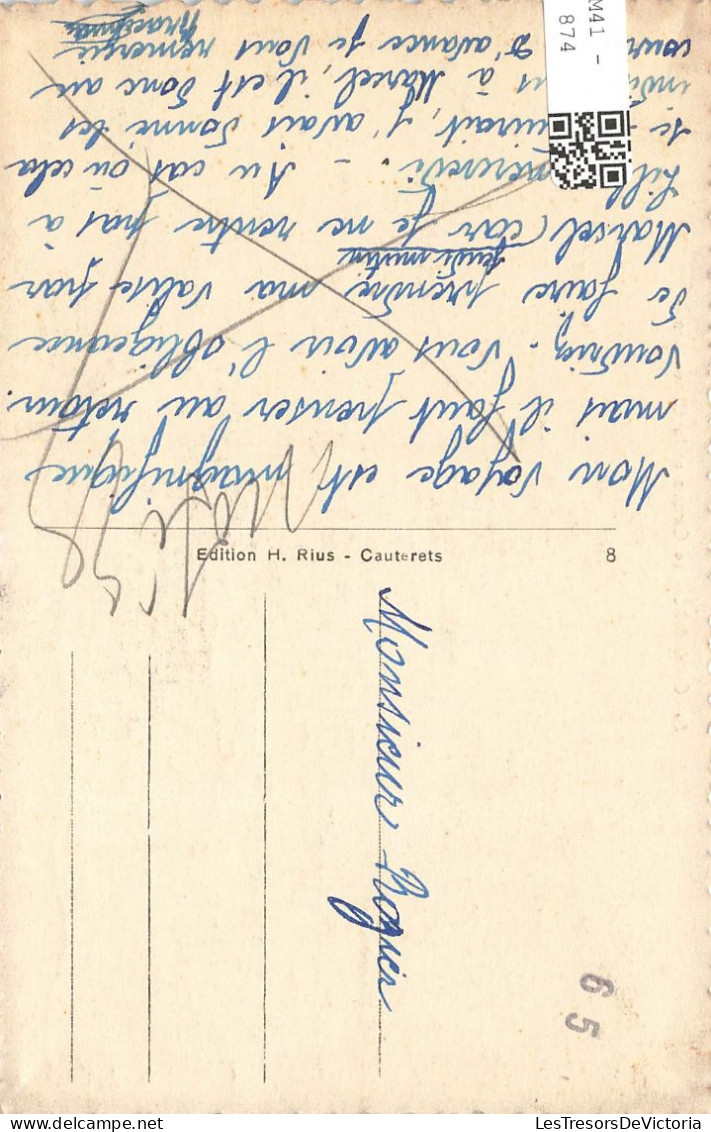 Mon voyage est magnifique
mais il faut penser au retour.
Voudriez-vous avoir l'obligeance
de faire prendre ma valise par
jeudi matin
Marcel (car je ne rentre pas à
mercredi. - Au cas où cela
j'avais donné les
à Marcel, il est donc au
D'avance je vous remercie
Edition H. Rius - Cauterets
8
Monsieur Rogier
65
M41 -
874
LesTresorsDeVictoria.com